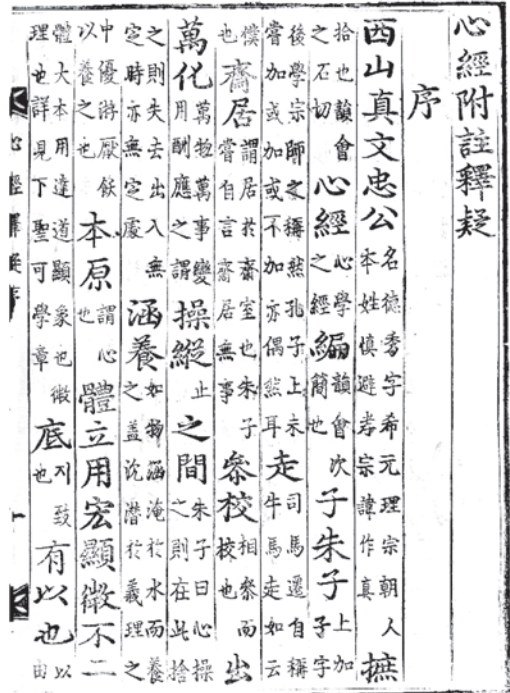 心經附註釋疑
序
西山真文忠公名德秀字希元理宗朝人本姓慎避孝宗諱作真摭
拾也韻會之石切心經心學之經編韻會次簡也子朱子上加子字
後學宗師之稱然孔子上未嘗加或加或不加亦偶然耳走司馬遷自稱牛馬走如云
僕也齋居謂居於齋室也朱子嘗自言齋居無事叅校相叅而校也出
萬化萬物萬事變用酬應之謂操縱止之間朱子曰心操之則在此捨
之則失去出入無定時亦無定處涵養如物涵淹於水而養之盖沈潜於義理之
中優游厭飫以養之也本原謂心也體立用宏顯微不二
體大本用達道顯象也微理也詳見下聖可學章底致也有以也以由
心經釋疑序 一